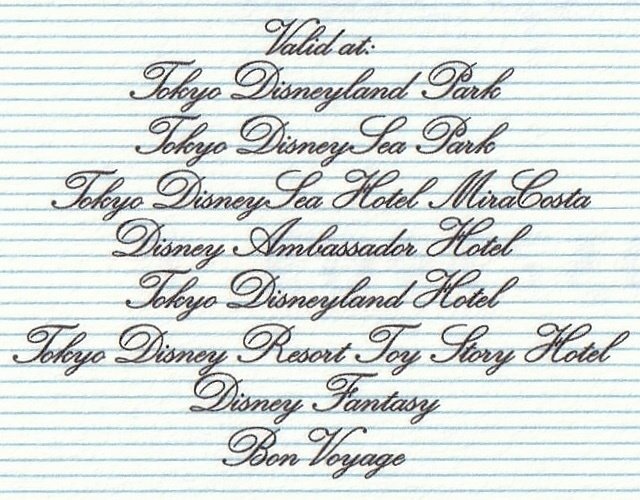 Valid at:
Tokyo Disneyland Park
Tokyo DisneySea Park
Tokyo DisneySea Hotel MiraCosta
Disney Ambassador Hotel
Tokyo Disneyland Hotel
Tokyo Disney Resort Toy Story Hotel
Disney Fantasy
Bon Voyage